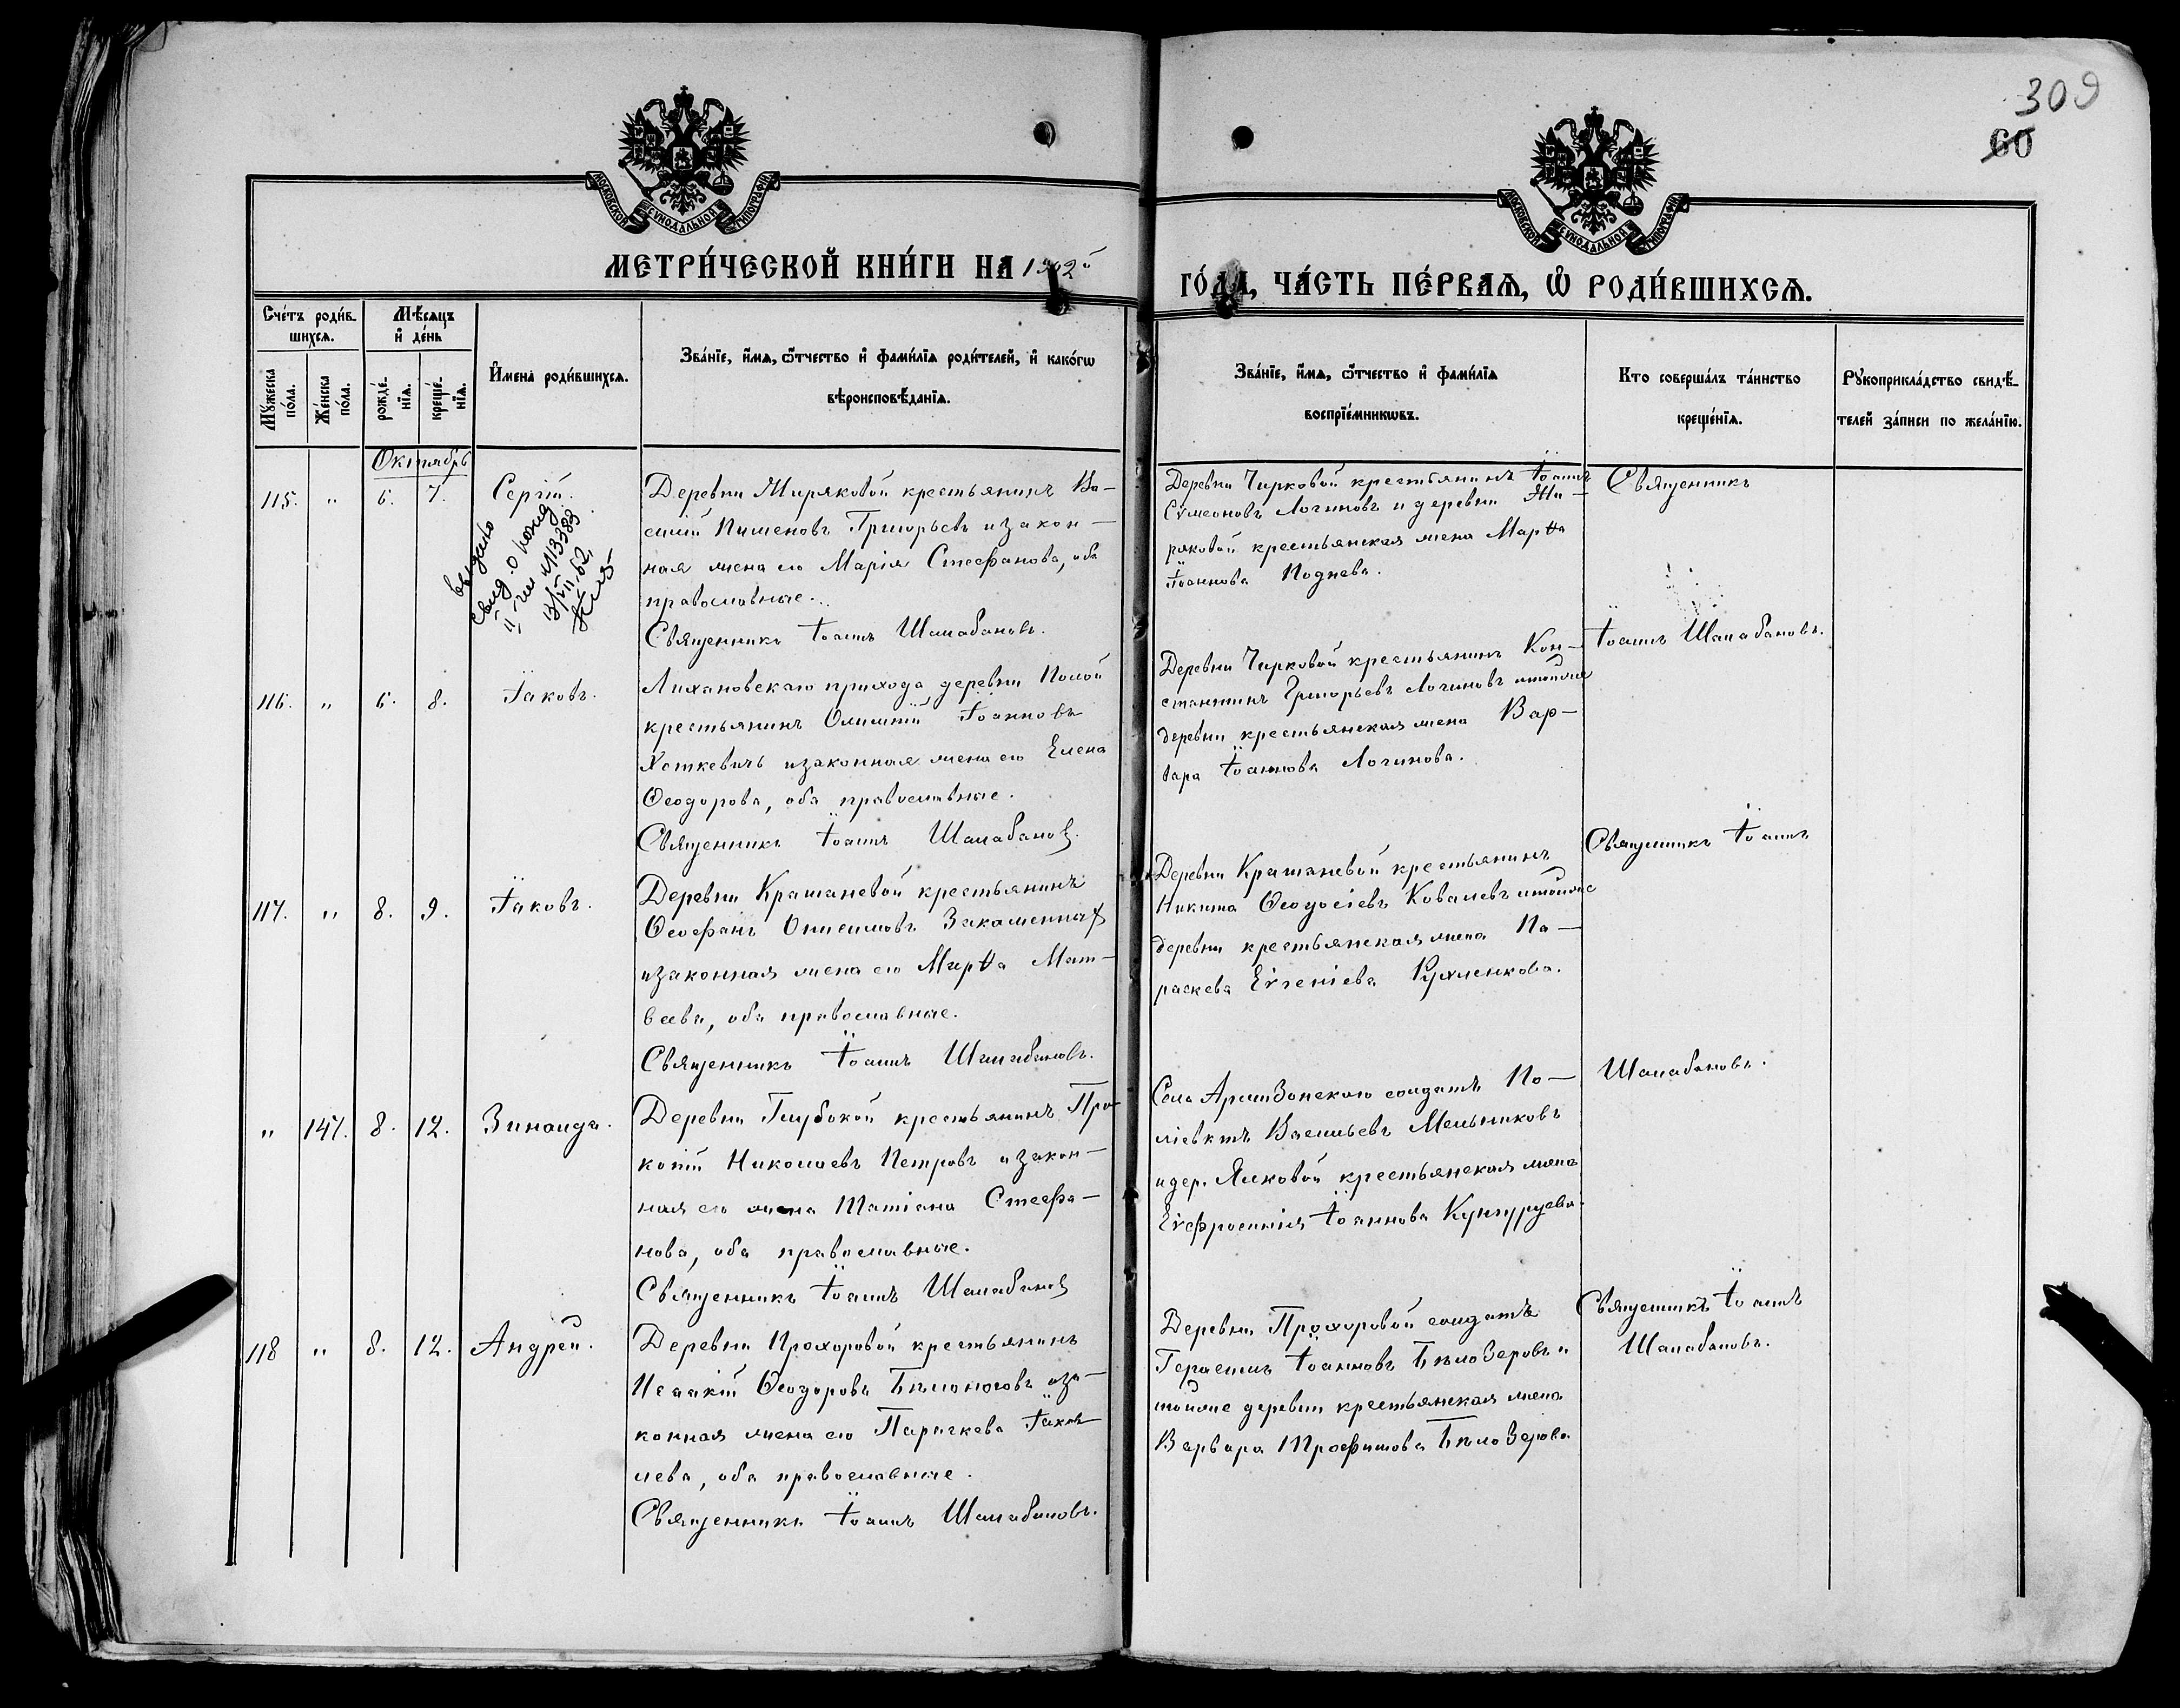 309
60
МОСКОВСКОЙ СУНОДАЛЬНОЙ ТИПОГРАФІИ
МОСКОВСКОЙ СУНОДАЛЬНОЙ ТИПОГРАФІИ
МЕТРИ́ЧЕСКОЙ КНИ́ГИ НА 1902й
ГО́ДА, ЧА́СТЬ ПЕ́РВАѦ, Ѡ РОДИ́ВШИХСѦ.
Сче́тъ роди́в-
шихсѧ.
Мѣ́сѧцъ
и де́нь
Мꙋ́жеска
по́ла.
Же́нска
по́ла.
рожде́-
нїѧ.
креще́-
нїѧ.
И҆мена̀ роди́вшихсѧ.
Зва́нїе, и҆́мѧ, ѻ҆́тчество и҆ фами́лїѧ роди́телей, и҆ како́гѡ
вѣроисповѣ́данїѧ.
Зва́нїе, и҆́мѧ, ѻ҆́тчество и҆ фами́лїѧ
воспрїе́мникѡвъ.
Кто соверша́лъ та́инство
креще́нїѧ.
Рꙋкоприкла́дство свидѣ́-
телей за́писи по жела́нїю.
Октябрь
115. " 6. 7. Сергій.
выдано
свид. о рожд
13/VII 62
Деревни Миряковой крестьянинъ Ва-
силій Пименовъ Григорьевъ и закон-
ная жена его Марія Стефанова, оба
православные.
Священникъ Іоаннъ Шалабановъ.
Деревни Чирковой крестьянинъ Іоаннъ
Сѵмеоновъ Логиновъ и деревни Ми-
ряковой крестьянская жена Марѳа
Іоаннова Поднева.
Священникъ
Іоаннъ Шалабановъ.
116. " 6. 8. Іаковъ.
Лихановскаго прихода, деревни Полой
крестьянинъ Олимпій Іоанновъ
Хоткевичъ и законная жена его Елена
Ѳеодорова, оба православные.
Священникъ Іоаннъ Шалабановъ.
Деревни Чирковой крестьянинъ Кон-
стантинъ Григорьевъ Логиновъ и тойже
деревни крестьянская жена Вар-
вара Іоаннова Логинова.
Священникъ Іоаннъ
117. " 8. 9. Іаковъ.
Деревни Крашаневой крестьянинъ
Ѳеофанъ Онисимовъ Закаменныхъ
и законная жена его Марѳа Мат-
веева, оба православные.
Священникъ Іоаннъ Шалабановъ.
Деревни Крашаневой крестьянинъ
Никита Ѳеодосіевъ Ковалевъ и тойже
деревни крестьянская жена Па-
раскева Евгеніева
Шалабановъ.
" 147. 8. 12. Зинаида.
Деревни Глубокой крестьянинъ Про-
копій Николаевъ Петровъ и закон-
ная его жена Татіана Стефа-
нова, оба православные.
Священникъ Іоаннъ Шалабановъ
Села солдатъ По-
ліевктъ Васильевъ Мельниковъ
и дер. крестьянская жена
Евфросинія Іоаннова Кунгурцева.
118 " 8. 12. Андрей.
Деревни Прохоровой крестьянинъ
Исаакій Ѳеодоровъ Бѣлоноговъ и за-
конная жена его Параскева Іаков-
лева, оба православные.
Священникъ Іоаннъ Шалабановъ.
Деревни Прохоровой солдатъ
Герасимъ Іоанновъ Бѣлозеровъ и
тойже деревни крестьянская жена
Варвара Трофимова Бѣлозерова
Священникъ Іоаннъ
Шалабановъ.